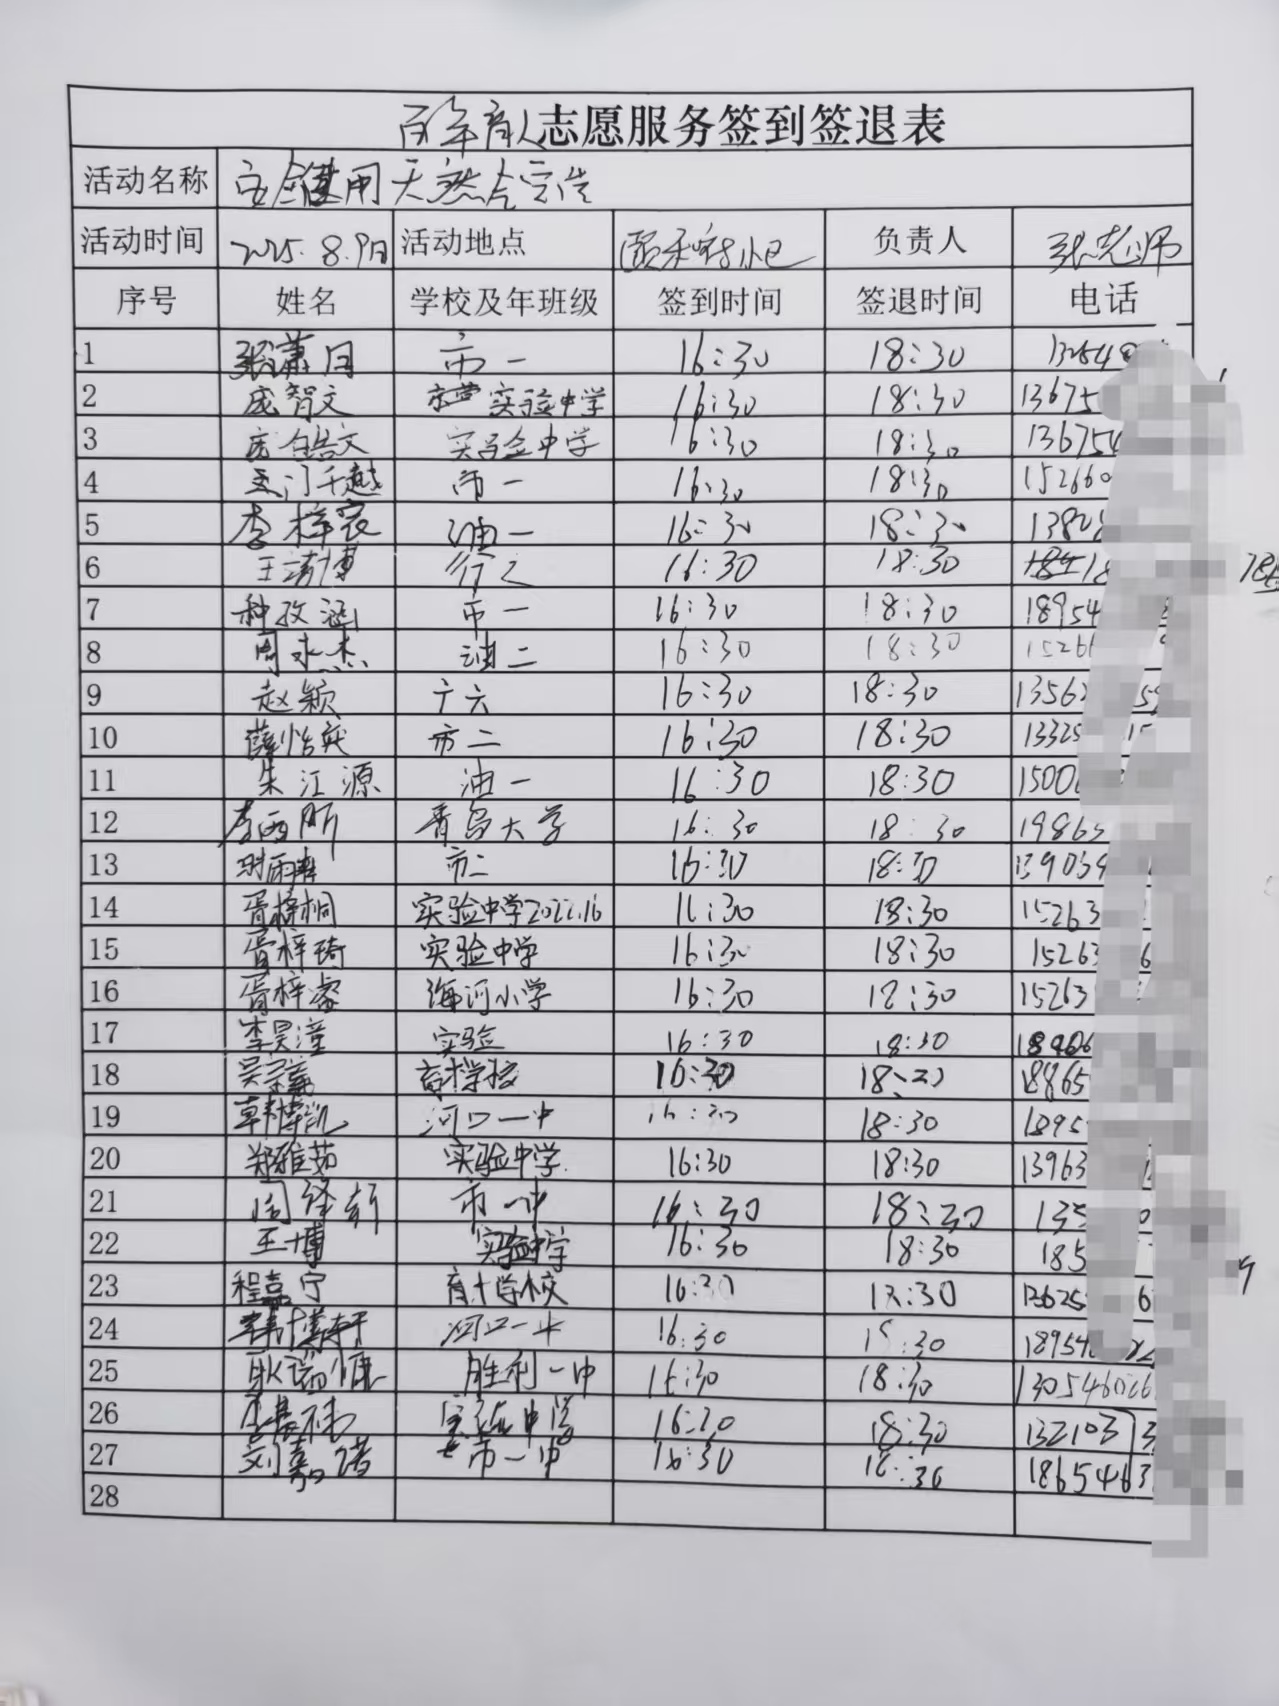 百年育人志愿服务签到签退表
活动名称 安全使用天然气宣传
活动时间 2025.8.9日 活动地点 负责人 张老师
序号 姓名 学校及年班级 签到时间 签退时间 电话
1 张潇月 市一 16:30 18:30 13254
2 庞智文 东营实验中学 16:30 18:30 13675
3 庞皓文 实验中学 16:30 18:30 13675
4 千越 市一 16:30 18:30 152660
5 李梓宸 油一 16:30 18:30
6 王 博 16:30 18:30
7 种孜涵 市一 16:30 18:30 18954
8 周永杰 油二 16:30 18:30 1526
9 赵颖 广六 16:30 18:30 1356
10 薛怡 市二 16:30 18:30 1332
11 朱江源 油一 16:30 18:30 1500
12 李西昕 青岛大学 16:30 18:30 19865
13 市二 16:30 18:30 13903
14 胥梓桐 实验中学2022.16 16:30 18:30 15263
15 胥梓琦 实验中学 16:30 18:30 15263
16 胥梓睿 海河小学 16:30 18:30 15263
17 李昊潼 实验 16:30 18:30
18 育才学校 16:30 18:30 18865
19 韩博凯 河口一中 16:30 18:30 1895
20 郑雅茹 实验中学 16:30 18:30 13963
21 市一中 16:30 18:30 135
22 王博 实验中学 16:30 18:30 185
23 程嘉宁 育才学校 16:30 18:30
24 韩博轩 河口一中 16:30 18:30 1895
25 耿瑞 胜利一中 16:30 18:30 13054
26 实验中学 16:30 18:30 132103
27 刘嘉诺 市一中 16:30 18:30 1865463
28